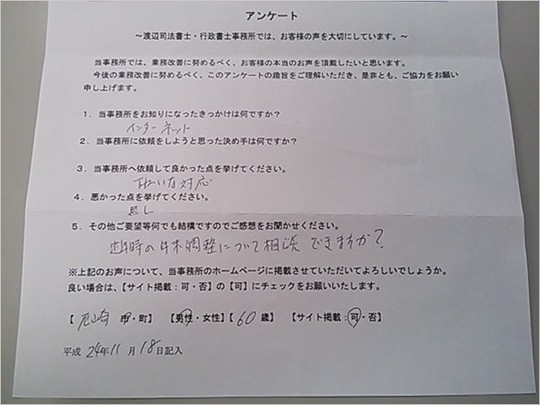 アンケート
～渡辺司法書士・行政書士事務所では、お客様の声を大切にしています。～
当事務所では、業務改善に努めるべく、お客様の本当のお声を頂戴したいと思います。
今後の業務改善に努めるべく、このアンケートの趣旨をご理解いただき、是非とも、ご協力をお願い
申し上げます。
1．当事務所をお知りになったきっかけは何ですか？
インターネット
2．当事務所に依頼をしようと思った決め手は何ですか？
3．当事務所へ依頼して良かった点を挙げてください。
ていねいな対応
4．悪かった点を挙げてください。
無し
5．その他ご要望等何でも結構ですのでご感想をお聞かせください。
の年末調整について相談できますか？
※上記のお声について、当事務所のホームページに掲載させていただいてよろしいでしょうか。
良い場合は、【サイト掲載：可・否】の【可】にチェックをお願いいたします。
【尼崎 市・町】 【男性・女性】【60 歳】 【サイト掲載：可・否】
平成 24年11月18日記入